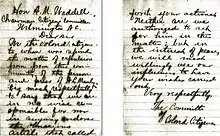 Hon A. M. Waddell
Chairman Citizens Committee
Wilmington N.C.
Dear Sir
We the colored citizens
to whom was referred
the matter of expulsion
from this community
of the person
and press of A. L. Manly
beg most respectfully
to say that we are
in no wise responsible
for nor in
any way endorse
the obnoxious
article that called
forth your actions
Neither are we
authorized to act
for him in this
matter; but in
the interest of peace
we will most
willingly use our
influence to have
your wishes carried
out.
Very respectfully
The Committee
of Colored Citizens